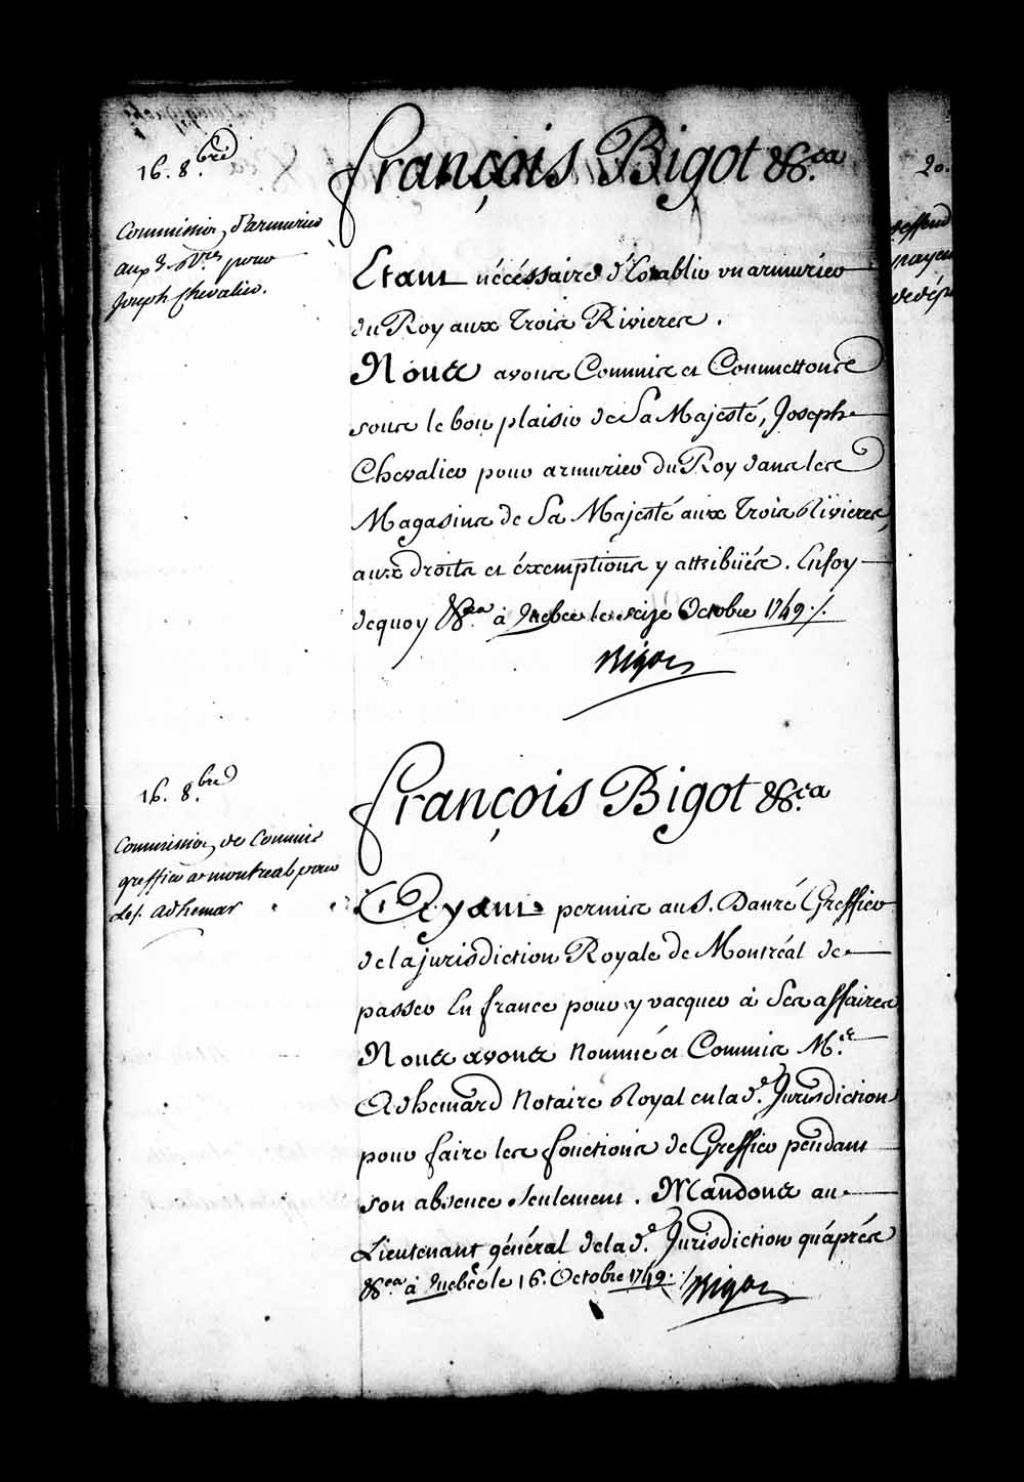 16. 8.bre
Commission d'armurier
aux 3. Rres pour
Joseph Chevalier.
François Bigot &c.a
Etant nécéssaire d'Establir un armurier
du Roy aux Trois Rivieres.
Nous avons Commis et Commettons
sous le bon plaisir de Sa Majesté, Joseph
Chevalier pour armurier du Roy dans les
Magasins de Sa Majesté aux Trois Rivieres,
aux droits et éxemptions y attribüés. En foy
de quoy &c.a à Quebec le seize Octobre 1749./.
Bigot
16. 8.bre
Commission de Commis
greffier a montreal pour
le s. adhemar
François Bigot &c.a
Ayant permis au S. Danré Greffier
de la jurisdiction Royale de Montréal de
passer En france pour y vacquer à Ses affaires
Nous avons Nommé et Commis M.e
Adhemard Notaire Royal en lad.e Jurisdiction
pour faire les fonctions de Greffier pendant
son absence seulement. Mandons au
Lieutenant général de lad.e Jurisdiction qu'áprés
&c.a à Quebec le 16. Octobre 1749./.
Bigot
20.